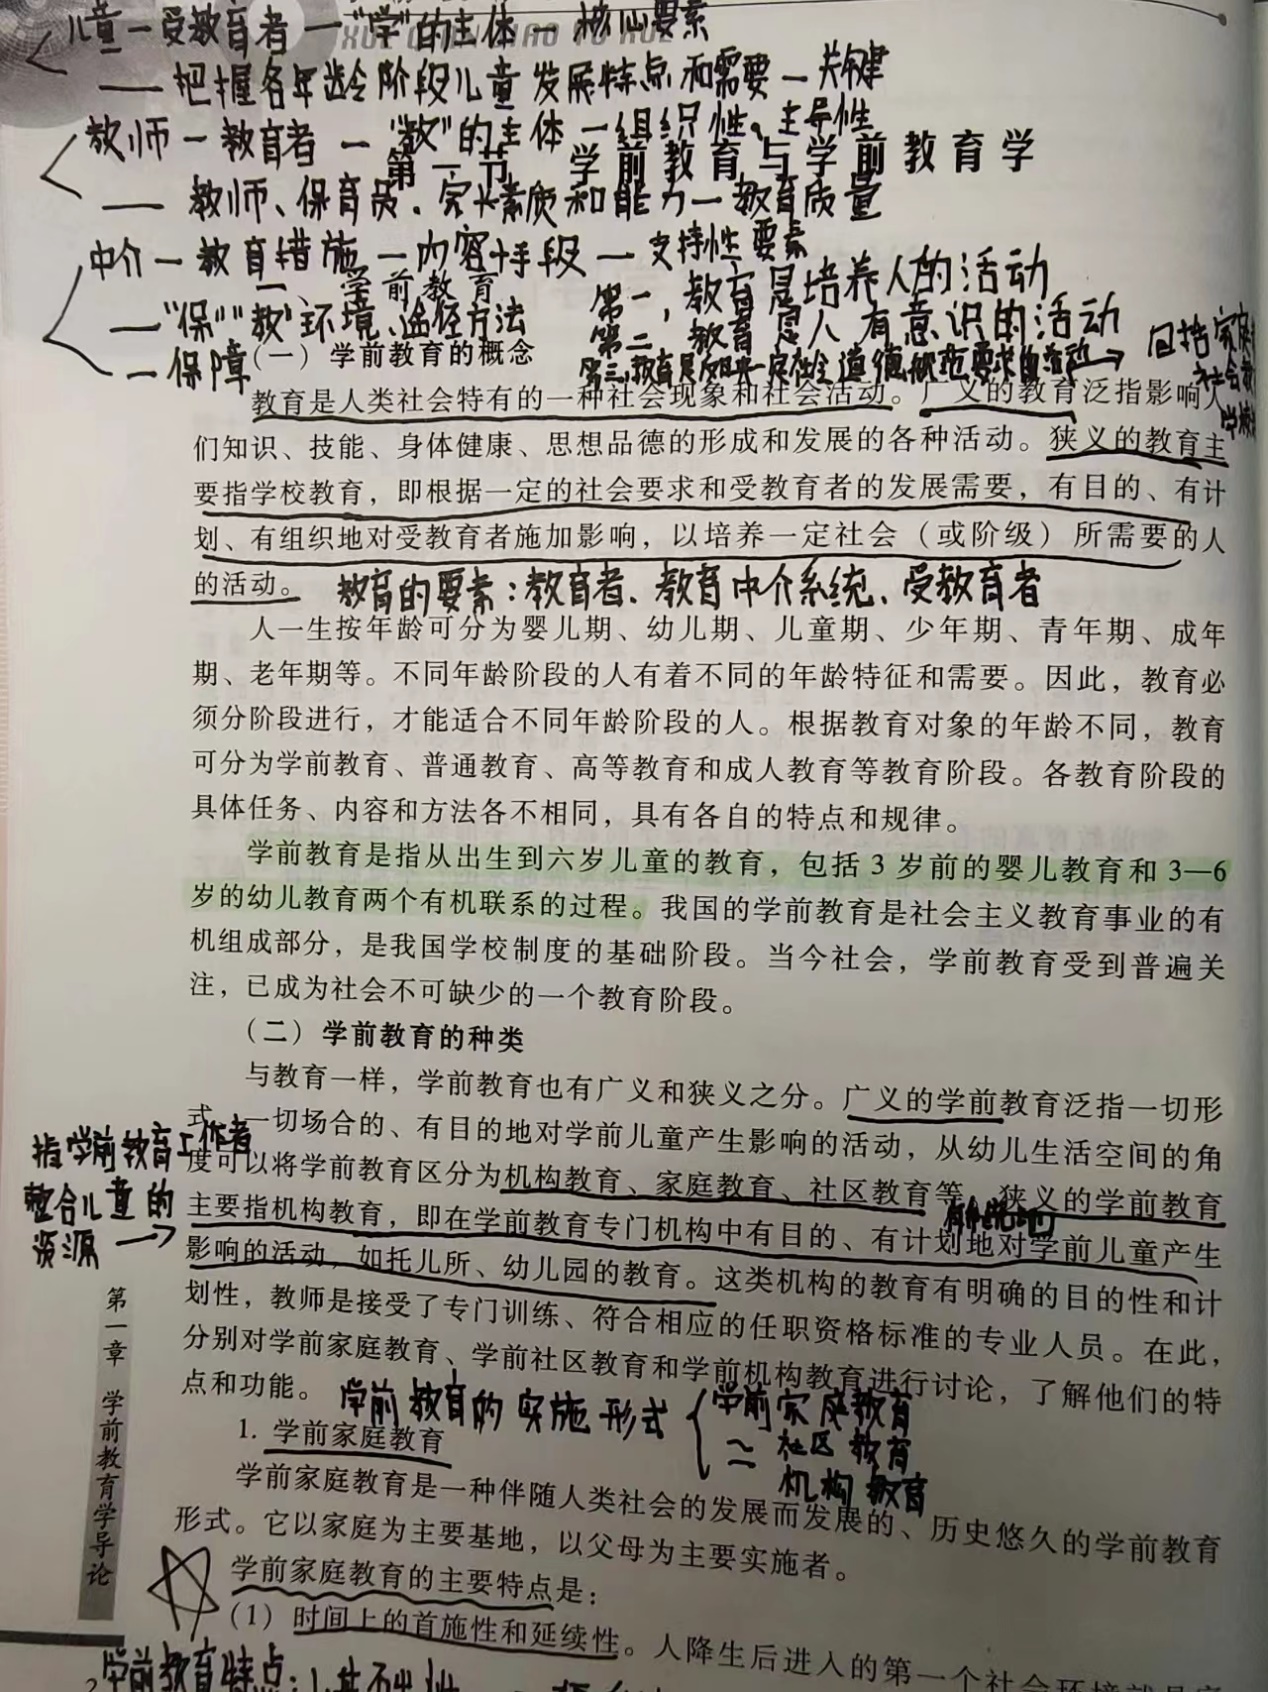 儿童—受教育者—“学”的主体—核心要素
——把握各年龄阶段儿童发展特点和需要—关键
教师—教育者—“教”的主体—组织性、主导性
第一节 学前教育与学前教育学
——教师、保育员、家长素质和能力—教育质量
中介—教育措施—内容+手段—支持性要素
一、学前教育
第一，教育是培养人的活动
—“保”“教”环境、途径方法
第二，教育是人有意识的活动
第三，教育是反映一定社会道德规范要求的活动→
包括家庭
社会教
学校
—保障
（一）学前教育的概念
教育是人类社会特有的一种社会现象和社会活动。广义的教育泛指影响人
们知识、技能、身体健康、思想品德的形成和发展的各种活动。狭义的教育主
要指学校教育，即根据一定的社会要求和受教育者的发展需要，有目的、有计
划、有组织地对受教育者施加影响，以培养一定社会（或阶级）所需要的人
的活动。
教育的要素：教育者、教育中介系统、受教育者
人一生按年龄可分为婴儿期、幼儿期、儿童期、少年期、青年期、成年
期、老年期等。不同年龄阶段的人有着不同的年龄特征和需要。因此，教育必
须分阶段进行，才能适合不同年龄阶段的人。根据教育对象的年龄不同，教育
可分为学前教育、普通教育、高等教育和成人教育等教育阶段。各教育阶段的
具体任务、内容和方法各不相同，具有各自的特点和规律。
学前教育是指从出生到六岁儿童的教育，包括 3 岁前的婴儿教育和 3—6
岁的幼儿教育两个有机联系的过程。我国的学前教育是社会主义教育事业的有
机组成部分，是我国学校制度的基础阶段。当今社会，学前教育受到普遍关
注，已成为社会不可缺少的一个教育阶段。
（二）学前教育的种类
与教育一样，学前教育也有广义和狭义之分。广义的学前教育泛指一切形
式、一切场合的、有目的地对学前儿童产生影响的活动，从幼儿生活空间的角
度可以将学前教育区分为机构教育、家庭教育、社区教育等。狭义的学前教育
主要指机构教育，即在学前教育专门机构中有目的、有计划地对学前儿童产生
影响的活动，如托儿所、幼儿园的教育。这类机构的教育有明确的目的性和计
划性，教师是接受了专门训练、符合相应的任职资格标准的专业人员。在此，
分别对学前家庭教育、学前社区教育和学前机构教育进行讨论，了解他们的特
点和功能。
指学前教育工作者
整合儿童的
资源→
学前教育的实施形式
学前家庭教育
社区教育
机构教育
1. 学前家庭教育
学前家庭教育是一种伴随人类社会的发展而发展的、历史悠久的学前教育
形式。它以家庭为主要基地，以父母为主要实施者。
学前家庭教育的主要特点是：
（1）时间上的首施性和延续性。人降生后进入的第一个社会环境就是家
学前教育特点：1.
第一章 学前教育学导论
2